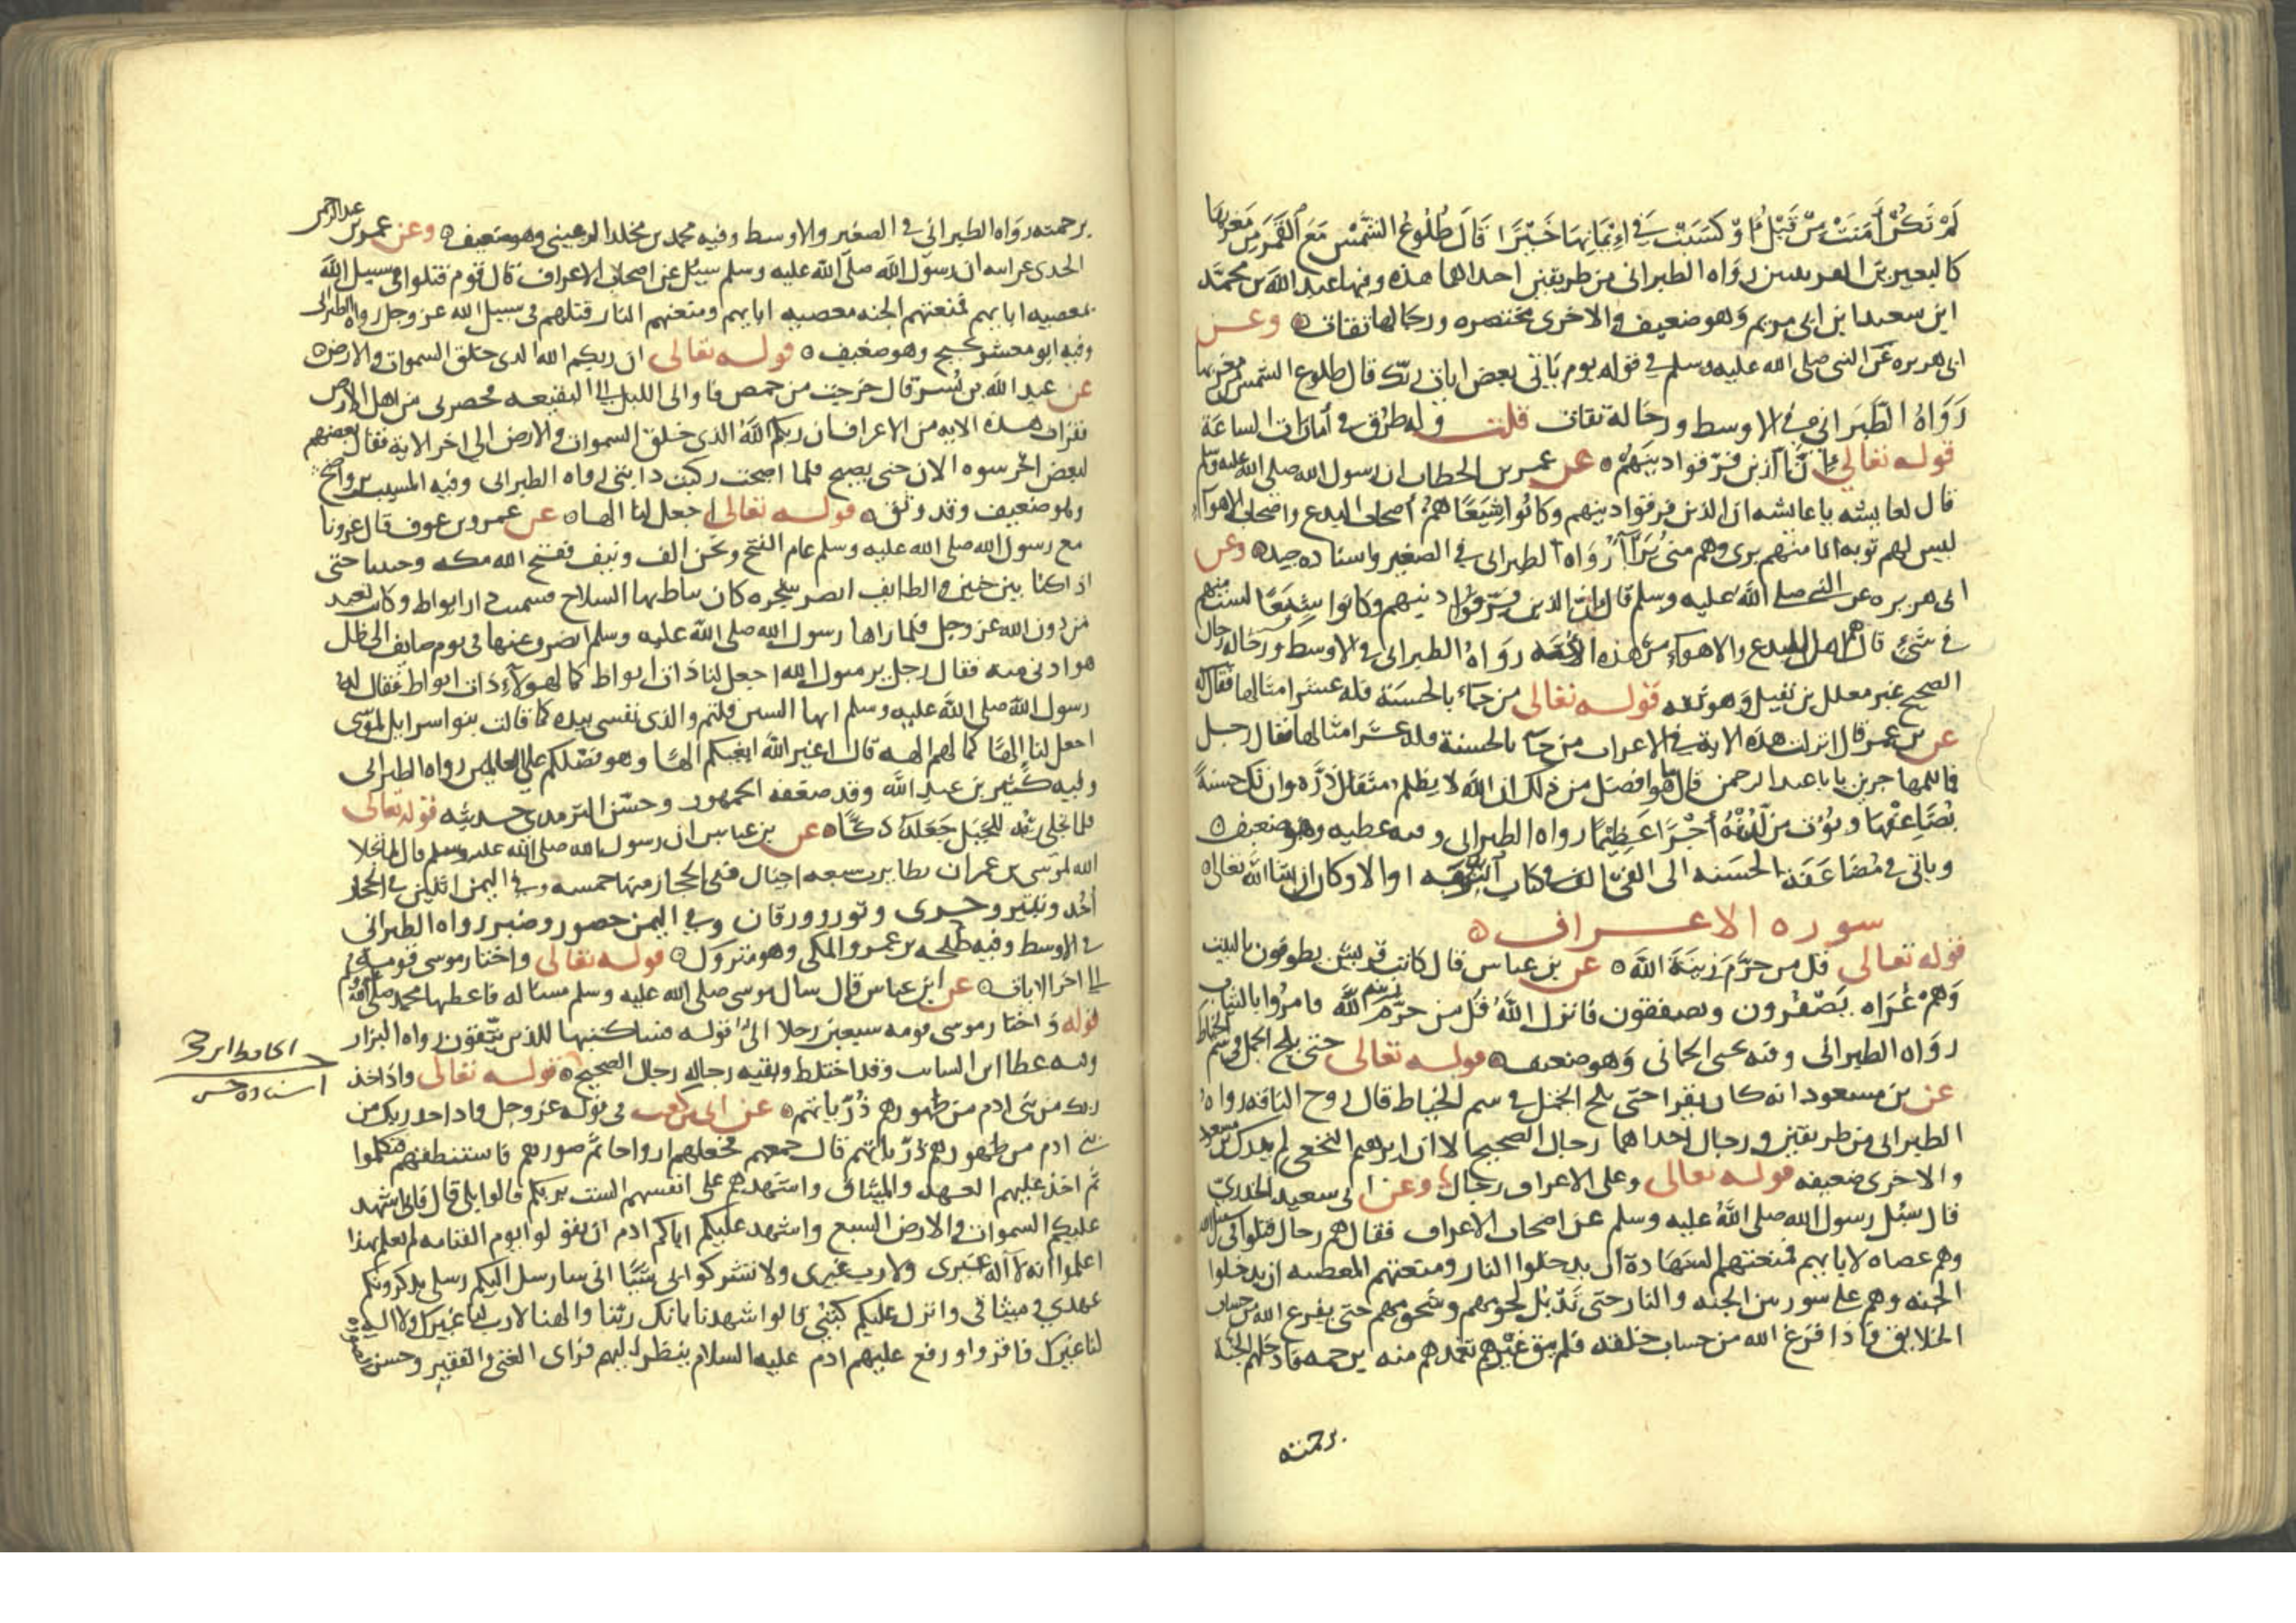 لم تكن امنت من قبل او كسبت في ايمانها خيرا قال طلوع الشمس مع القمر من مغربها
كالبعيرين القرينين رواه الطبراني من طريقين احداهما هذه وفيها عبد الله بن محمد
ابن سعيد ابن ابي مريم وهو ضعيف والاخرى مختصره ورجالها ثقات وعن
ابي هريره عن النبي صلى الله عليه وسلم في قوله يوم ياتي بعض ايات ربك قال طلوع الشمس من مغربها
رواه الطبراني في الاوسط ورجاله ثقات قلت وله طرق في امارات الساعة
قوله تعالى ان الذين فرقوا دينهم عن عمر بن الخطاب ان رسول الله صلى الله عليه وسلم
قال لعايشه يا عايشه ان الذين فرقوا دينهم وكانوا شيعا هم اصحاب البدع واصحاب الاهواء
ليس لهم توبه انا منهم بري وهم مني براء رواه الطبراني في الصغير واسناده جيد وعن
ابي هريره عن النبي صلى الله عليه وسلم قال ان الذين فرقوا دينهم وكانوا شيعا لست منهم
في شئ قال هم اهل البدع والاهواء من هذه الامه رواه الطبراني في الاوسط ورجاله رجال
الصحيح غير معلل بن نفيل وهو ثقه قوله تعالى من جاء بالحسنة فله عشر امثالها
عن بن عمر قال نزلت هذه الاية في الاعراب من جاء بالحسنة فله عشر امثالها فقال رجل
فما للمهاجرين يا با عبد الرحمن قال ما هو افضل من ذلك ان الله لا يظلم مثقال ذرة وان تك حسنة
يضاعفها ويؤت من لدنه اجرا عظيما رواه الطبراني وفيه عطيه وهو ضعيف
وياتي في مضاعفة الحسنه الى الفي الف في كتاب التوبه او الاذكار ان شا الله تعالى
سورة الاعراف
قوله تعالى قل من حرم زينة الله عن بن عباس قال كانت قريش يطوفون بالبيت
وهم عراه يصفرون ويصفقون فانزل الله قل من حرم زينة الله فامروا بالثياب
رواه الطبراني وفيه يحيى الحماني وهو ضعيف قوله تعالى حتى يلج الجمل في سم الخياط
عن بن مسعود انه كان يقرا حتى يلج الجمل في سم الخياط قال زوج الناقه رواه
الطبراني من طريقين ورجال احداهما رجال الصحيح الا ان ابراهيم النخعي لم يدرك بن مسعود
والاخرى ضعيفه قوله تعالى وعلى الاعراف رجال وعن ابي سعيد الخدري
قال سئل رسول الله صلى الله عليه وسلم عن اصحاب الاعراف فقال هم رجال قتلوا في سبيل الله
وهم عصاه لابايهم فمنعتهم الشهادة ان يدخلوا النار ومنعتهم المعصيه ان يدخلوا
الجنه وهم على سور بين الجنه والنار حتى تذبل لحومهم وشحومهم حتى يفرغ الله من حساب
الخلايق فاذا فرغ الله من حساب خلقه فلم يبق غيرهم تغمدهم منه برحمه فادخلهم الجنة
برحمته
برحمته رواه الطبراني في الصغير والاوسط وفيه محمد بن مخلد الرعيني وهو ضعيف وعن عمر بن عبد الرحمن
ان رسول الله صلى الله عليه وسلم سيل عن اصحاب الاعراف قال قوم قتلوا في سبيل الله
بمعصيه ابايهم فمنعتهم الجنه معصيه ابايهم ومنعتهم النار قتلهم في سبيل الله عز وجل رواه الطبراني
وفيه ابو معشر نجيح وهو ضعيف قوله تعالى ان ربكم الله الذي خلق السموات والارض
عن عبد الله بن بسر قال خرجت من حمص فاواني الليل الى البقيعه فحضرني من اهل الارض
فقرات هذه الايه من الاعراف ان ربكم الله الذي خلق السموات والارض الى اخر الاية فقال بعضهم
لبعض احرسوه الان حتى يصبح فلما اصبحت ركبت دابتي رواه الطبراني وفيه المسيب بن واضح
وهو ضعيف وقد وثق قوله تعالى اجعل لنا الها عن عمرو بن عوف قال غزونا
مع رسول الله صلى الله عليه وسلم عام الفتح ونحن الف ونيف ففتح الله مكه وحنينا حتى
اذا كنا بين حنين والطايف ابصر شجره كان يناط بها السلاح فسميت ذات انواط وكانت تعبد
من دون الله عز وجل فلما راها رسول الله صلى الله عليه وسلم انصرف عنها في يوم صايف الى ظل
هو ادنى منه فقال رجل يا رسول الله اجعل لنا ذات انواط كما لهولاء ذات انواط فقال له
رسول الله صلى الله عليه وسلم انها السنن قلتم والذي نفسي بيده كما قالت بنو اسرايل لموسى
اجعل لنا الها كما لهم الهه قال اغير الله ابغيكم الها وهو فضلكم على العالمين رواه الطبراني
وفيه كثير بن عبد الله وقد ضعفه الجمهور وحسن الترمذي حديثه قوله تعالى
فلما تجلى ربه للجبل جعله دكا عن بن عباس ان رسول الله صلى الله عليه وسلم قال لما تجلا
الله لموسى بن عمران تطايرت سبعه اجبال ففي الحجاز منها خمسه وفي اليمن اثنين في الحجاز
احد وثبير وحرى وثور وورقان وفي اليمن حصور وصبر رواه الطبراني
في الاوسط وفيه طلحه بن عمرو المكي وهو متروك قوله تعالى واختار موسى قومه
الى اخر الايات عن ابن عباس قال سال موسى صلى الله عليه وسلم مساله فاعطيها محمد صلى الله عليه وسلم
قوله واختار موسى قومه سبعين رجلا الى قوله فساكتبها للذين يتقون رواه البزار
وفيه عطا ابن السايب وقد اختلط وبقيه رجاله رجال الصحيح قوله تعالى واذ اخذ
ربك من بني ادم من ظهورهم ذرياتهم عن ابي بن كعب في قوله عز وجل واذ اخذ ربك من
بني ادم من ظهورهم ذرياتهم قال جمعهم فجعلهم ارواحا ثم صورهم فاستنطقهم فتكلموا
ثم اخذ عليهم العهد والميثاق واشهدهم على انفسهم الست بربكم قالوا بلى قال فاني اشهد
عليكم السموات والارض السبع واشهد عليكم اباكم ادم ان تقولوا يوم القيامه لم نعلم بهذا
اعلموا انه لا اله غيري ولا رب غيري ولا تشركوا بي شيئا اني سارسل اليكم رسلي يذكرونكم
عهدي وميثاقي وانزل عليكم كتبي قالوا شهدنا بانك ربنا والهنا لا رب لنا غيرك ولا اله
لنا غيرك فاقروا ورفع عليهم ادم عليه السلام ينظر اليهم فراى الغني والفقير وحسن
اسناده حسن